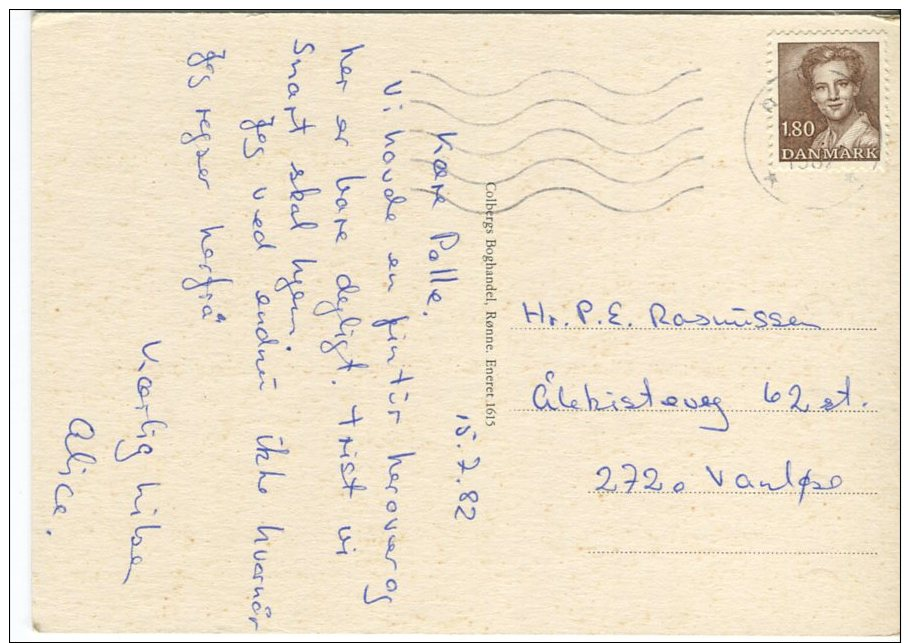 15.7.82
Kære Palle.
Vi havde en fin tur herover og
her er bare dejligt. trist vi
snart skal hjem.
Jeg ved endnu ikke hvornår
jeg rejser herfra
Kærlig hilsen
Alice.
Colbergs Boghandel, Rønne. Eneret 1615
1.80
DANMARK
Hr. P.E. Rasmussen
Ålekistevej 62 st.
2720 Vanløse